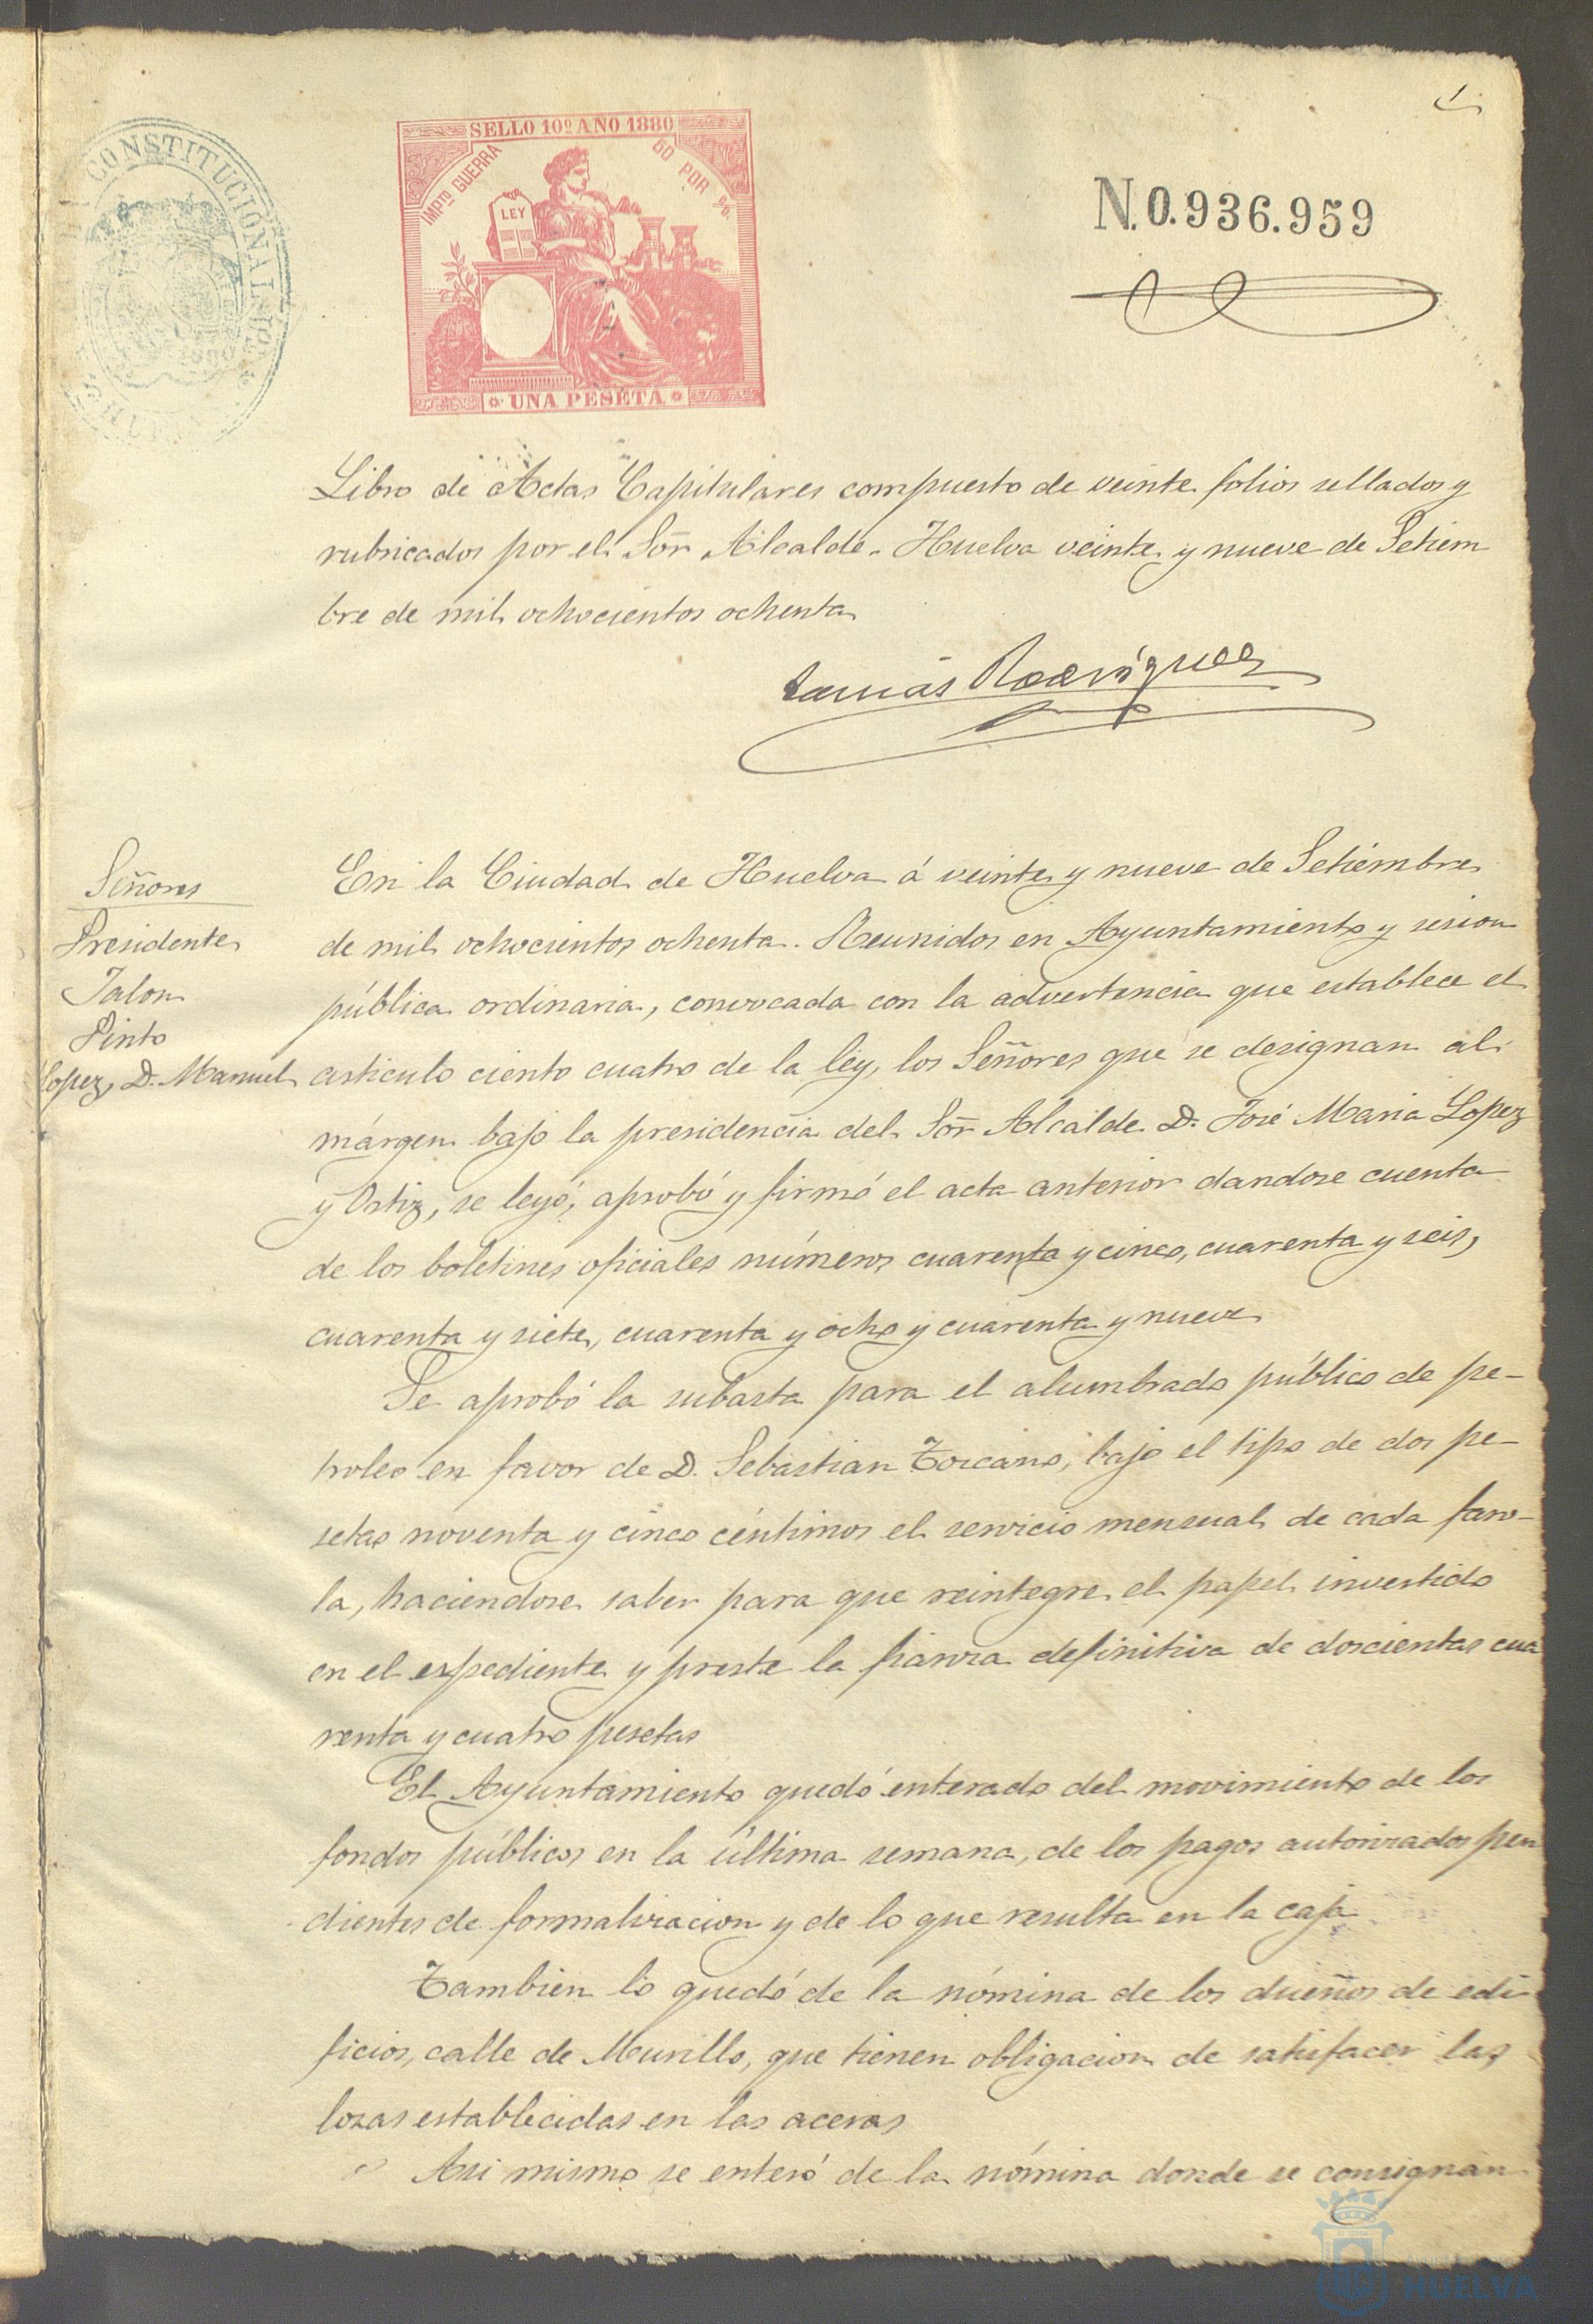 1
CONSTITUCIONAL
SELLO 10º AÑO 1880
IMPTO GUERRA
50 POR %
LEY
UNA PESETA
N.0.936.959
Libro de Actas Capitulares compuesto de veinte folios sellados y
rubricados por el Sor̃ Alcalde. Huelva veinte y nueve de Setiem
bre de mil ochocientos ochenta
Tomás Rodríguez
Señores
Presidente
Jalon
Pinto
Lopez, D. Manuel
En la Ciudad de Huelva á veinte y nueve de Setiembre
de mil ochocientos ochenta. Reunidos en Ayuntamiento y sesion
pública ordinaria, convocada con la advertencia que establece el
articulo ciento cuatro de la ley, los Señores que se designan al
márgen bajo la presidencia del Sor̃ Alcalde D. José Maria Lopez
y Ortiz, se leyó, aprobó y firmó el acta anterior dandose cuenta
de los boletines oficiales números cuarenta y cinco, cuarenta y seis,
cuarenta y siete, cuarenta y ocho y cuarenta y nueve
Se aprobó la subasta para el alumbrado público de pe-
troleo en favor de D. Sebastian Toscano, bajo el tipo de dos pe-
setas noventa y cinco céntimos el servicio mensual de cada faro-
la, haciendose saber para que reintegre el papel invertido
en el expediente y preste la fianza definitiva de doscientas cua
renta y cuatro pesetas
El Ayuntamiento quedó enterado del movimiento de los
fondos públicos en la última semana, de los pagos autorizados pen
dientes de formalizacion y de lo que resulta en la caja
Tambien lo quedó de la nómina de los dueños de edi
ficios, calle de Murillo, que tienen obligacion de satisfacer las
lozas establecidas en las aceras
Asi mismo se enteró de la nómina donde se consignan
HUELVA